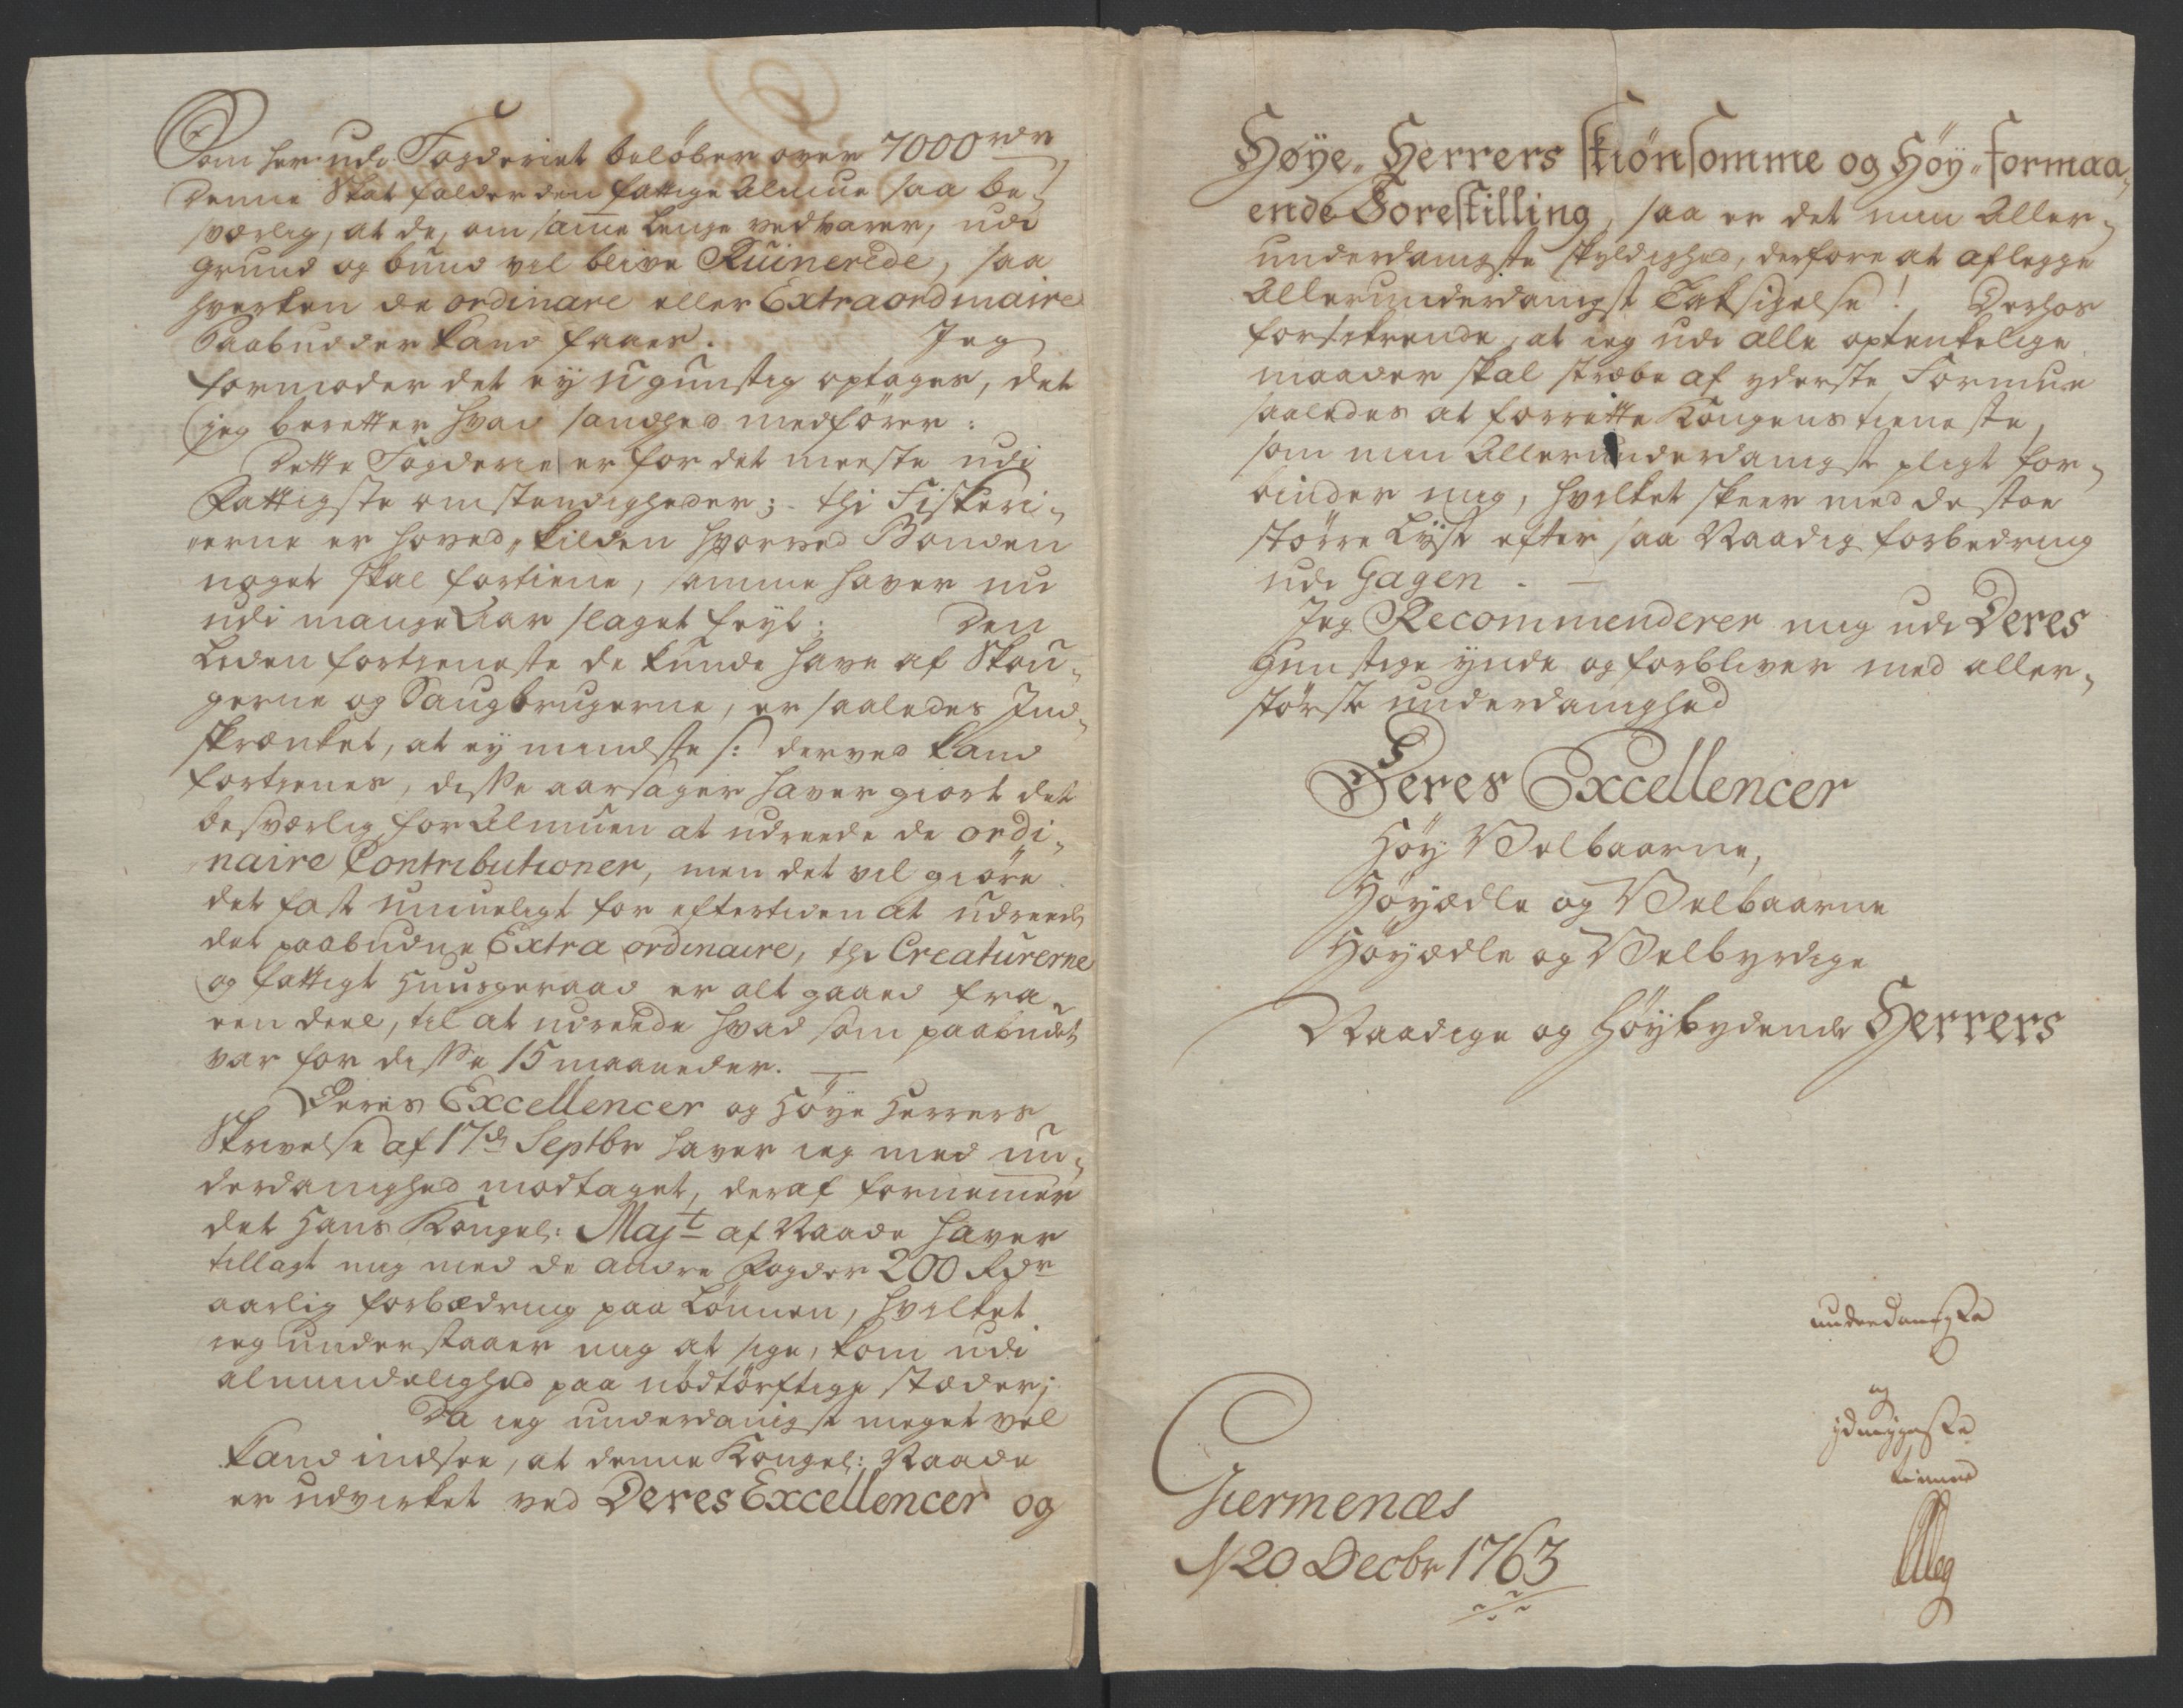 Som her udi Fogderiet beløber over 7000 rdr
Denne Skat falder den fattige Almue saa be-
sværlig, at de, om samme lenge vedvarer, udi
grund og bund vil blive Ruinerede, saa
hverken de ordinare eller Extraordinaire
Paabudder kand faaes. Jeg
formoder det ey ugunstig optages, det
jeg beretter hvad sandhed medfører:
Dette Fogderie er for det meeste udi
Fattigste omstendigheder; thi Fiskeri-
erne er hoved-kilden hvorved Bonden
noget skal fortiene, samme haver nu
udi mange Aar slaget feyl; Den
Liden fortieneste de kunde have af Skou-
gerne og Saugbrugerne, er saaledes Ind-
skrænket, at ey mindste s: derved kand
fortienes, disse aarsager haver giort det
besværlig for Almuen at udreede de ordi-
naire Contributioner, men det vil giøre
det fast umueligt for eftertiden at udreede
det paabudne Extra ordinaire, thi Creaturerne
og fattigt Huusgeraad er alt gaaed fra
een deel, til at udreede hvad som paabudet
var for disse 15 maaneder.
Deres Excellencer og Høye Herrers
Skrivelse af 17de Septbr haver ieg med un-
derdanighed modtaget, deraf fornemmer
det Hans Kongel: Majt af Naade haver
tillagt mig med de andre Fogder 200 Rdr
aarlig forbædring paa Lønnen, hvilket
ieg understaaer mig at sige, kom udi
almindelighed paa nødtørftige stæder;
Da ieg underdanigst meget vel
kand indsee, at denne Kongel: Naade
er udvirket ved Deres Excellencer og
Høye Herrers skiønsomme og Høy-formaa-
ende Forestilling, saa er det min Aller-
underdanigste skyldighed, derfore at aflegge
Allerunderdanigst Taksigelse! Derhos
forsikrende, at ieg udi alle optenkelige
maader skal stræbe af yderste Formue
saaledes at forrette Kongens tieneste,
som min Allerunderdanigst pligt for-
binder mig, hvilket skeer med desto
større Lyst efter saa Naadig forbedring
udi Gagen.
Jeg Recommenderer mig udi Deres
Gunstige ynde og forbliver med aller-
største underdanighed
Deres Excellencer
Høy Velbaarne,
Høyædle og Velbaarne
Høyædle og Velbyrdige
Naadige og Høybydende Herrers
underdanigste
og
ydmygeste
tienner
Giermenæs
d 20 Decbr 1763